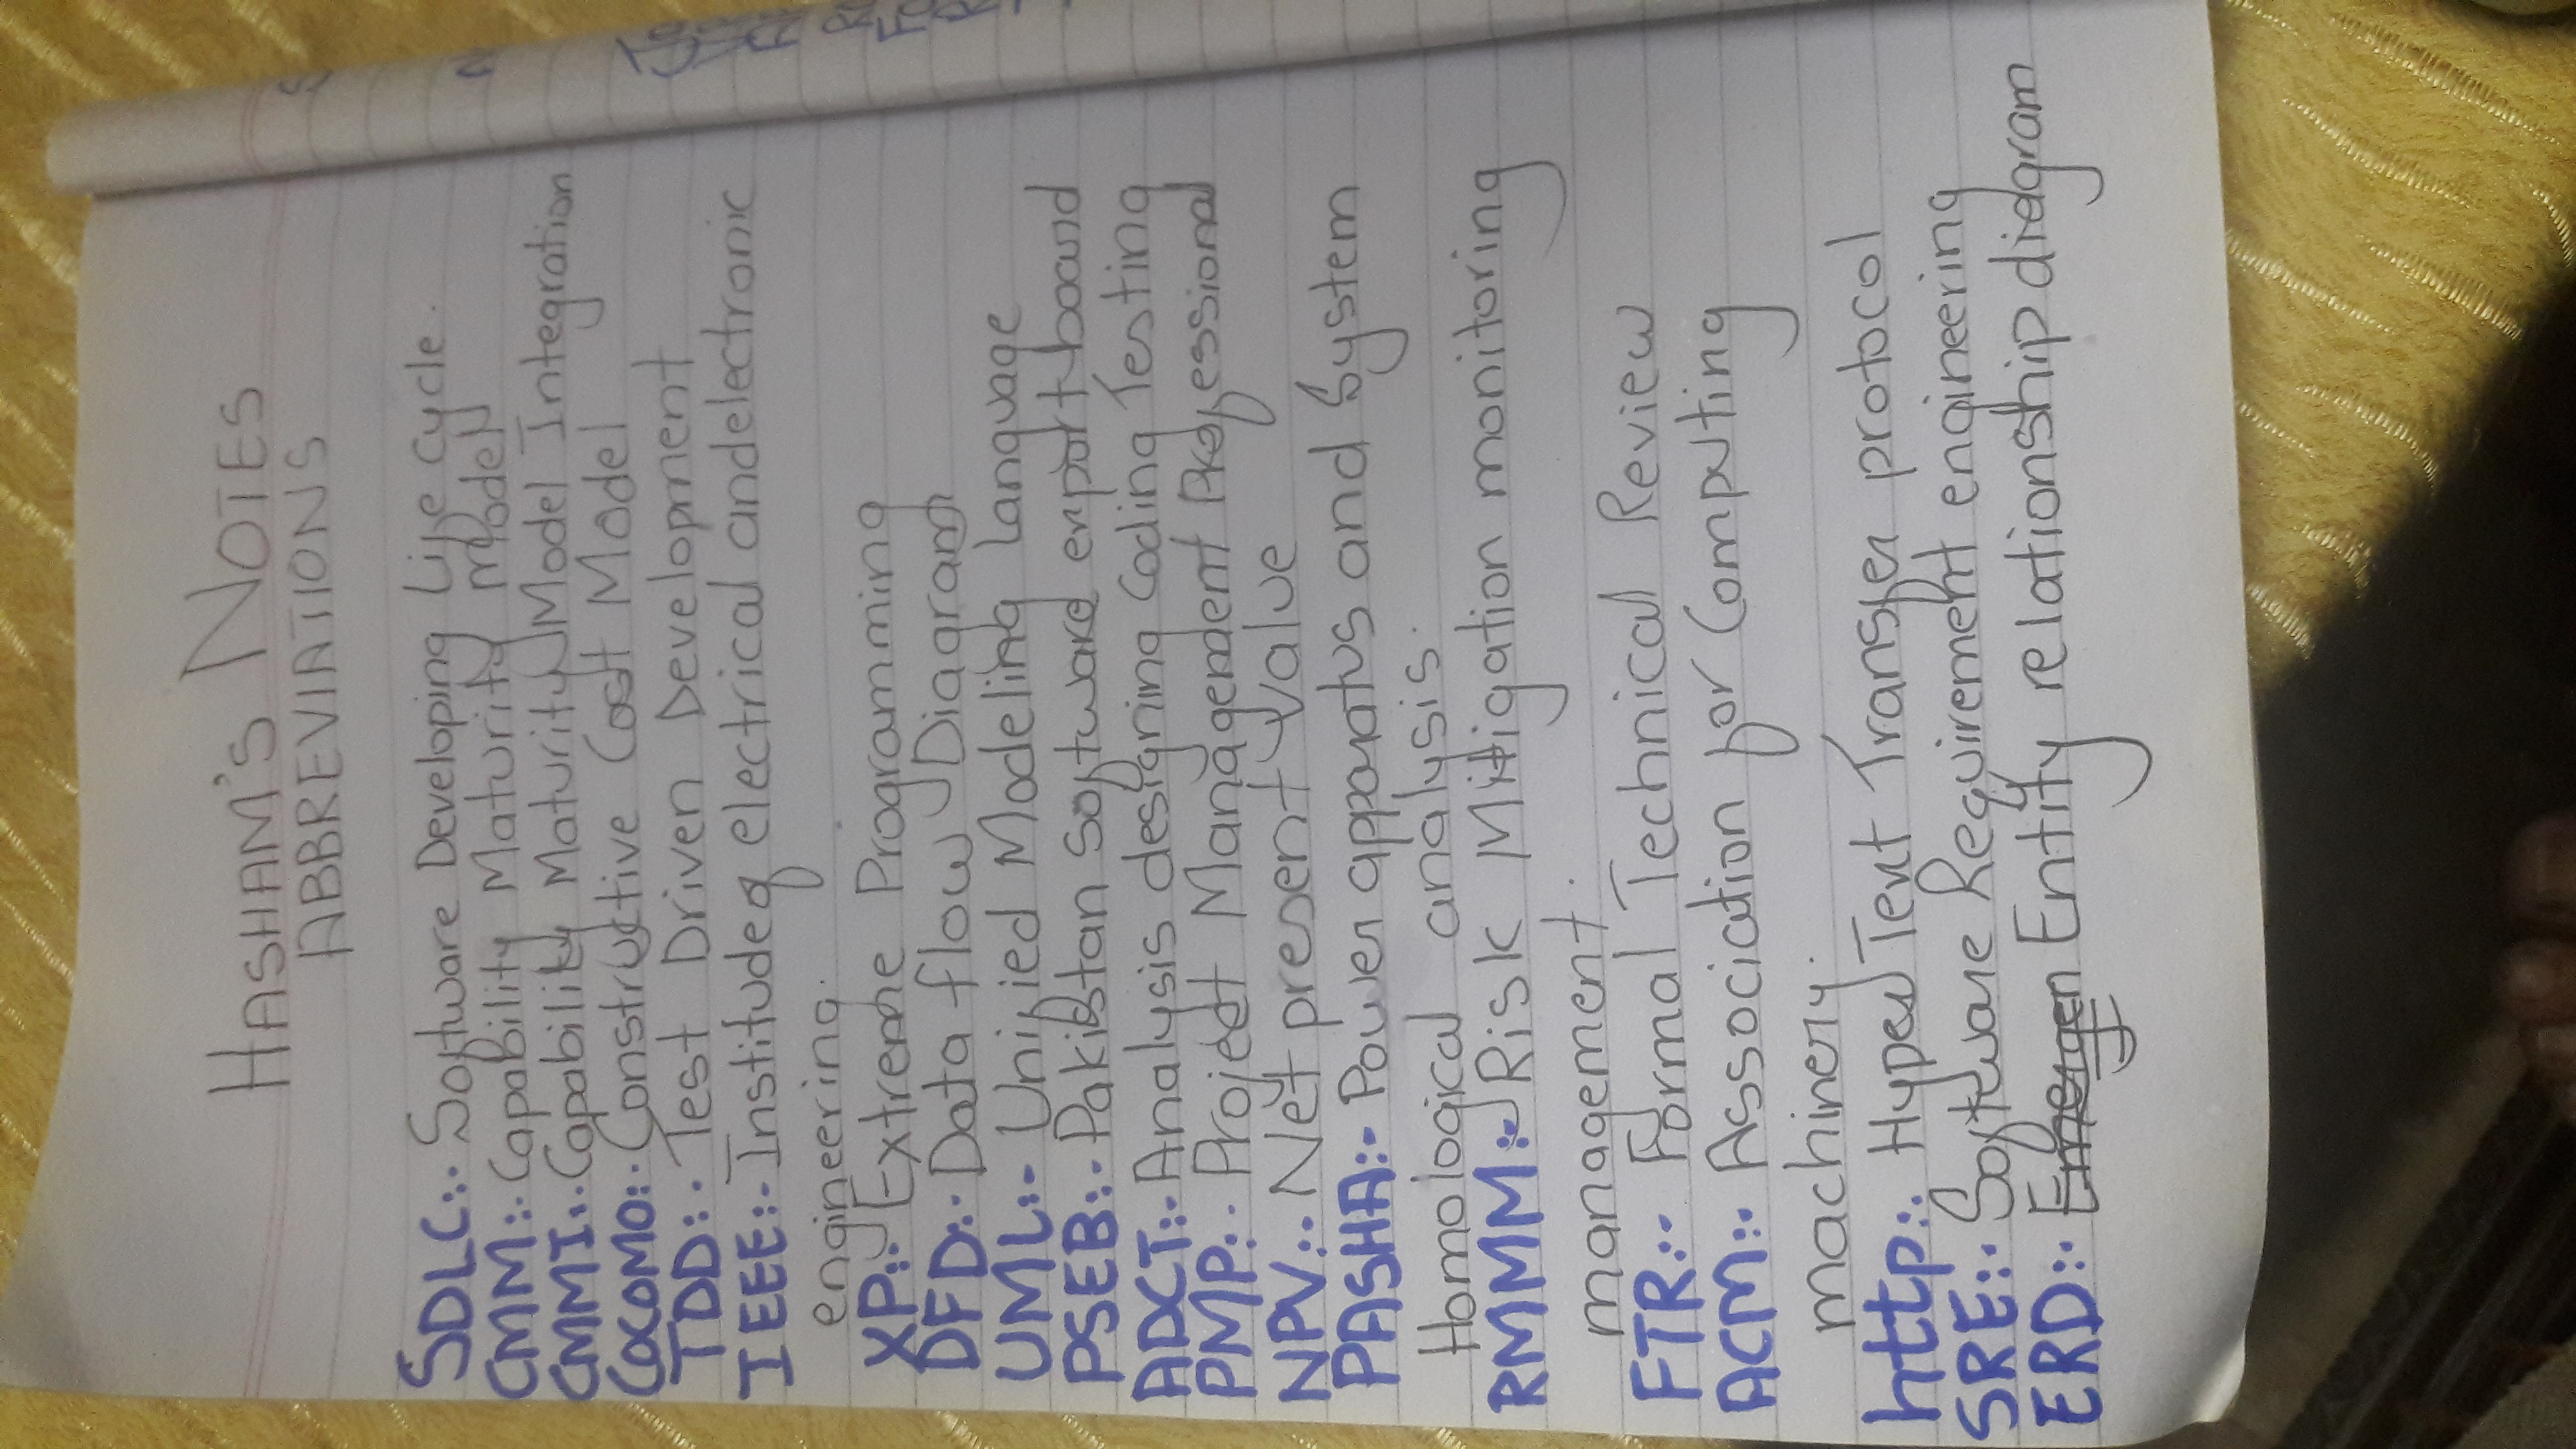 HASHAM'S NOTES
ABBREVIATIONS
SDLC:- Software Developing Life cycle.
CMM:- Capability Maturity Model
CMMI:- Capability Maturity Model Integration
COCOMO:- Constructive Cost Model
TDD:- Test Driven Development
IEEE:- Institude of electrical and electronic
engineering.
XP:- Extreme Programming
DFD:- Data flow Diagram
UML:- Unified Modeling Language
PSEB:- Pakistan Software export board
ADCT:- Analysis designing Coding Testing
PMP:- Project Management Professional
NPV:- Net present value
PASHA:- Power apparatus and System
Homological analysis.
RMMM:- Risk Mitigation monitoring
management.
FTR:- Formal Technical Review
ACM:- Association for Computing
machinery.
http:- Hyper Text Transfer protocol
SRE:- Software Requirement engineering
ERD:- Emergen Entity relationship diagram